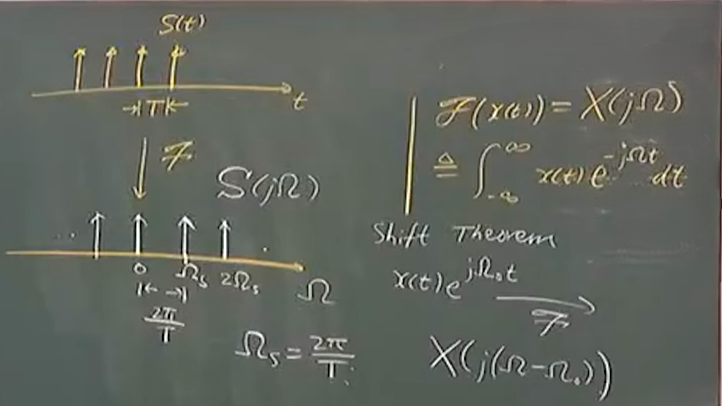 S(t)
→|T|←
t
ℱ
S(jΩ)
...
0 Ωₛ 2Ωₛ Ω
|← →|
2π/T
Ωₛ = 2π/T
ℱ(x(t)) = X(jΩ)
≜ ∫_{-∞}^{∞} x(t) e^{-jΩt} dt
Shift Theorem
x(t) e^{jΩ₀t} → ℱ
X(j(Ω-Ω₀))